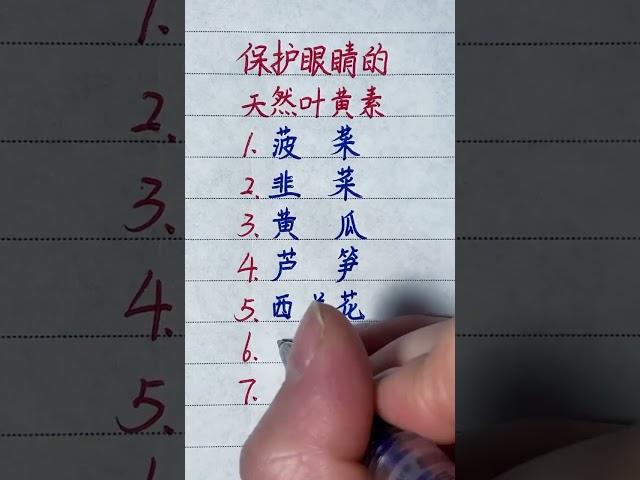 保护眼睛的
天然叶黄素
1. 菠菜
2. 韭菜
3. 黄瓜
4. 芦笋
5. 西兰花
6.
7.